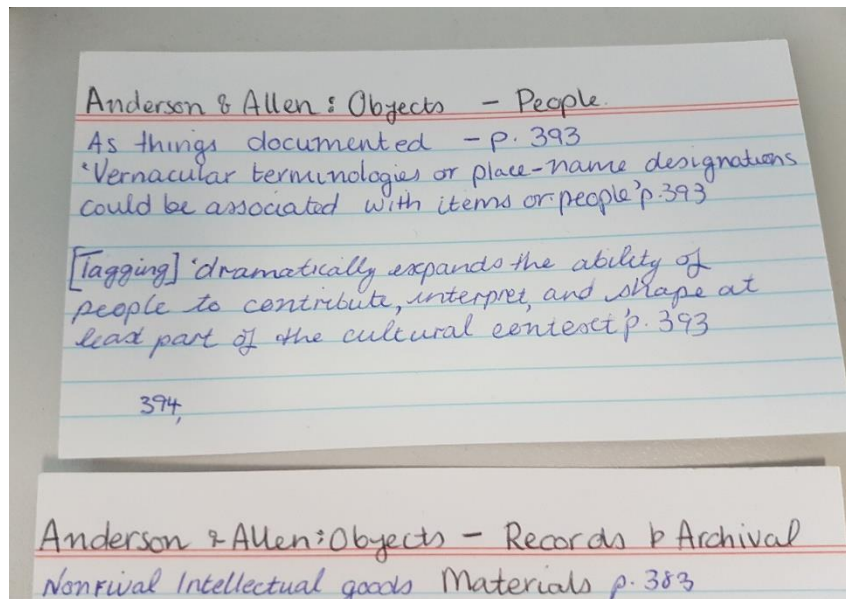 Anderson & Allen: Objects - People.
As things documented - p. 393
'Vernacular terminologies or place-name designations
could be associated with items or people' p.393
[Tagging] 'dramatically expands the ability of
people to contribute, interpret, and shape at
least part of the cultural context' p. 393
394,
Anderson & Allen: Objects - Records & Archival
Nonrival Intellectual goods Materials p. 383